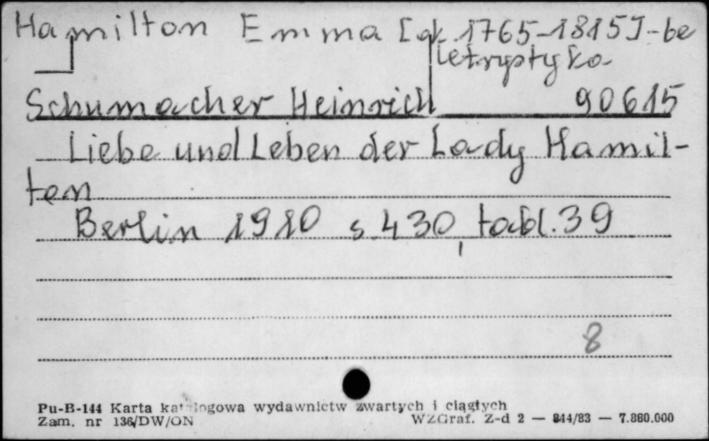 Hamilton Emma [ok. 1765-1815]-be
letrystyka
Schumacher Heinrich 90615
Liebe und Leben der Lady Hamil-
ton
Berlin 1910 s. 430, tabl. 39
8
Pu-B-144 Karta katalogowa wydawnictw zwartych i ciągłych
Zam. nr 136/DW/ON WZGraf. Z-d 2 — 844/83 — 7.880.000